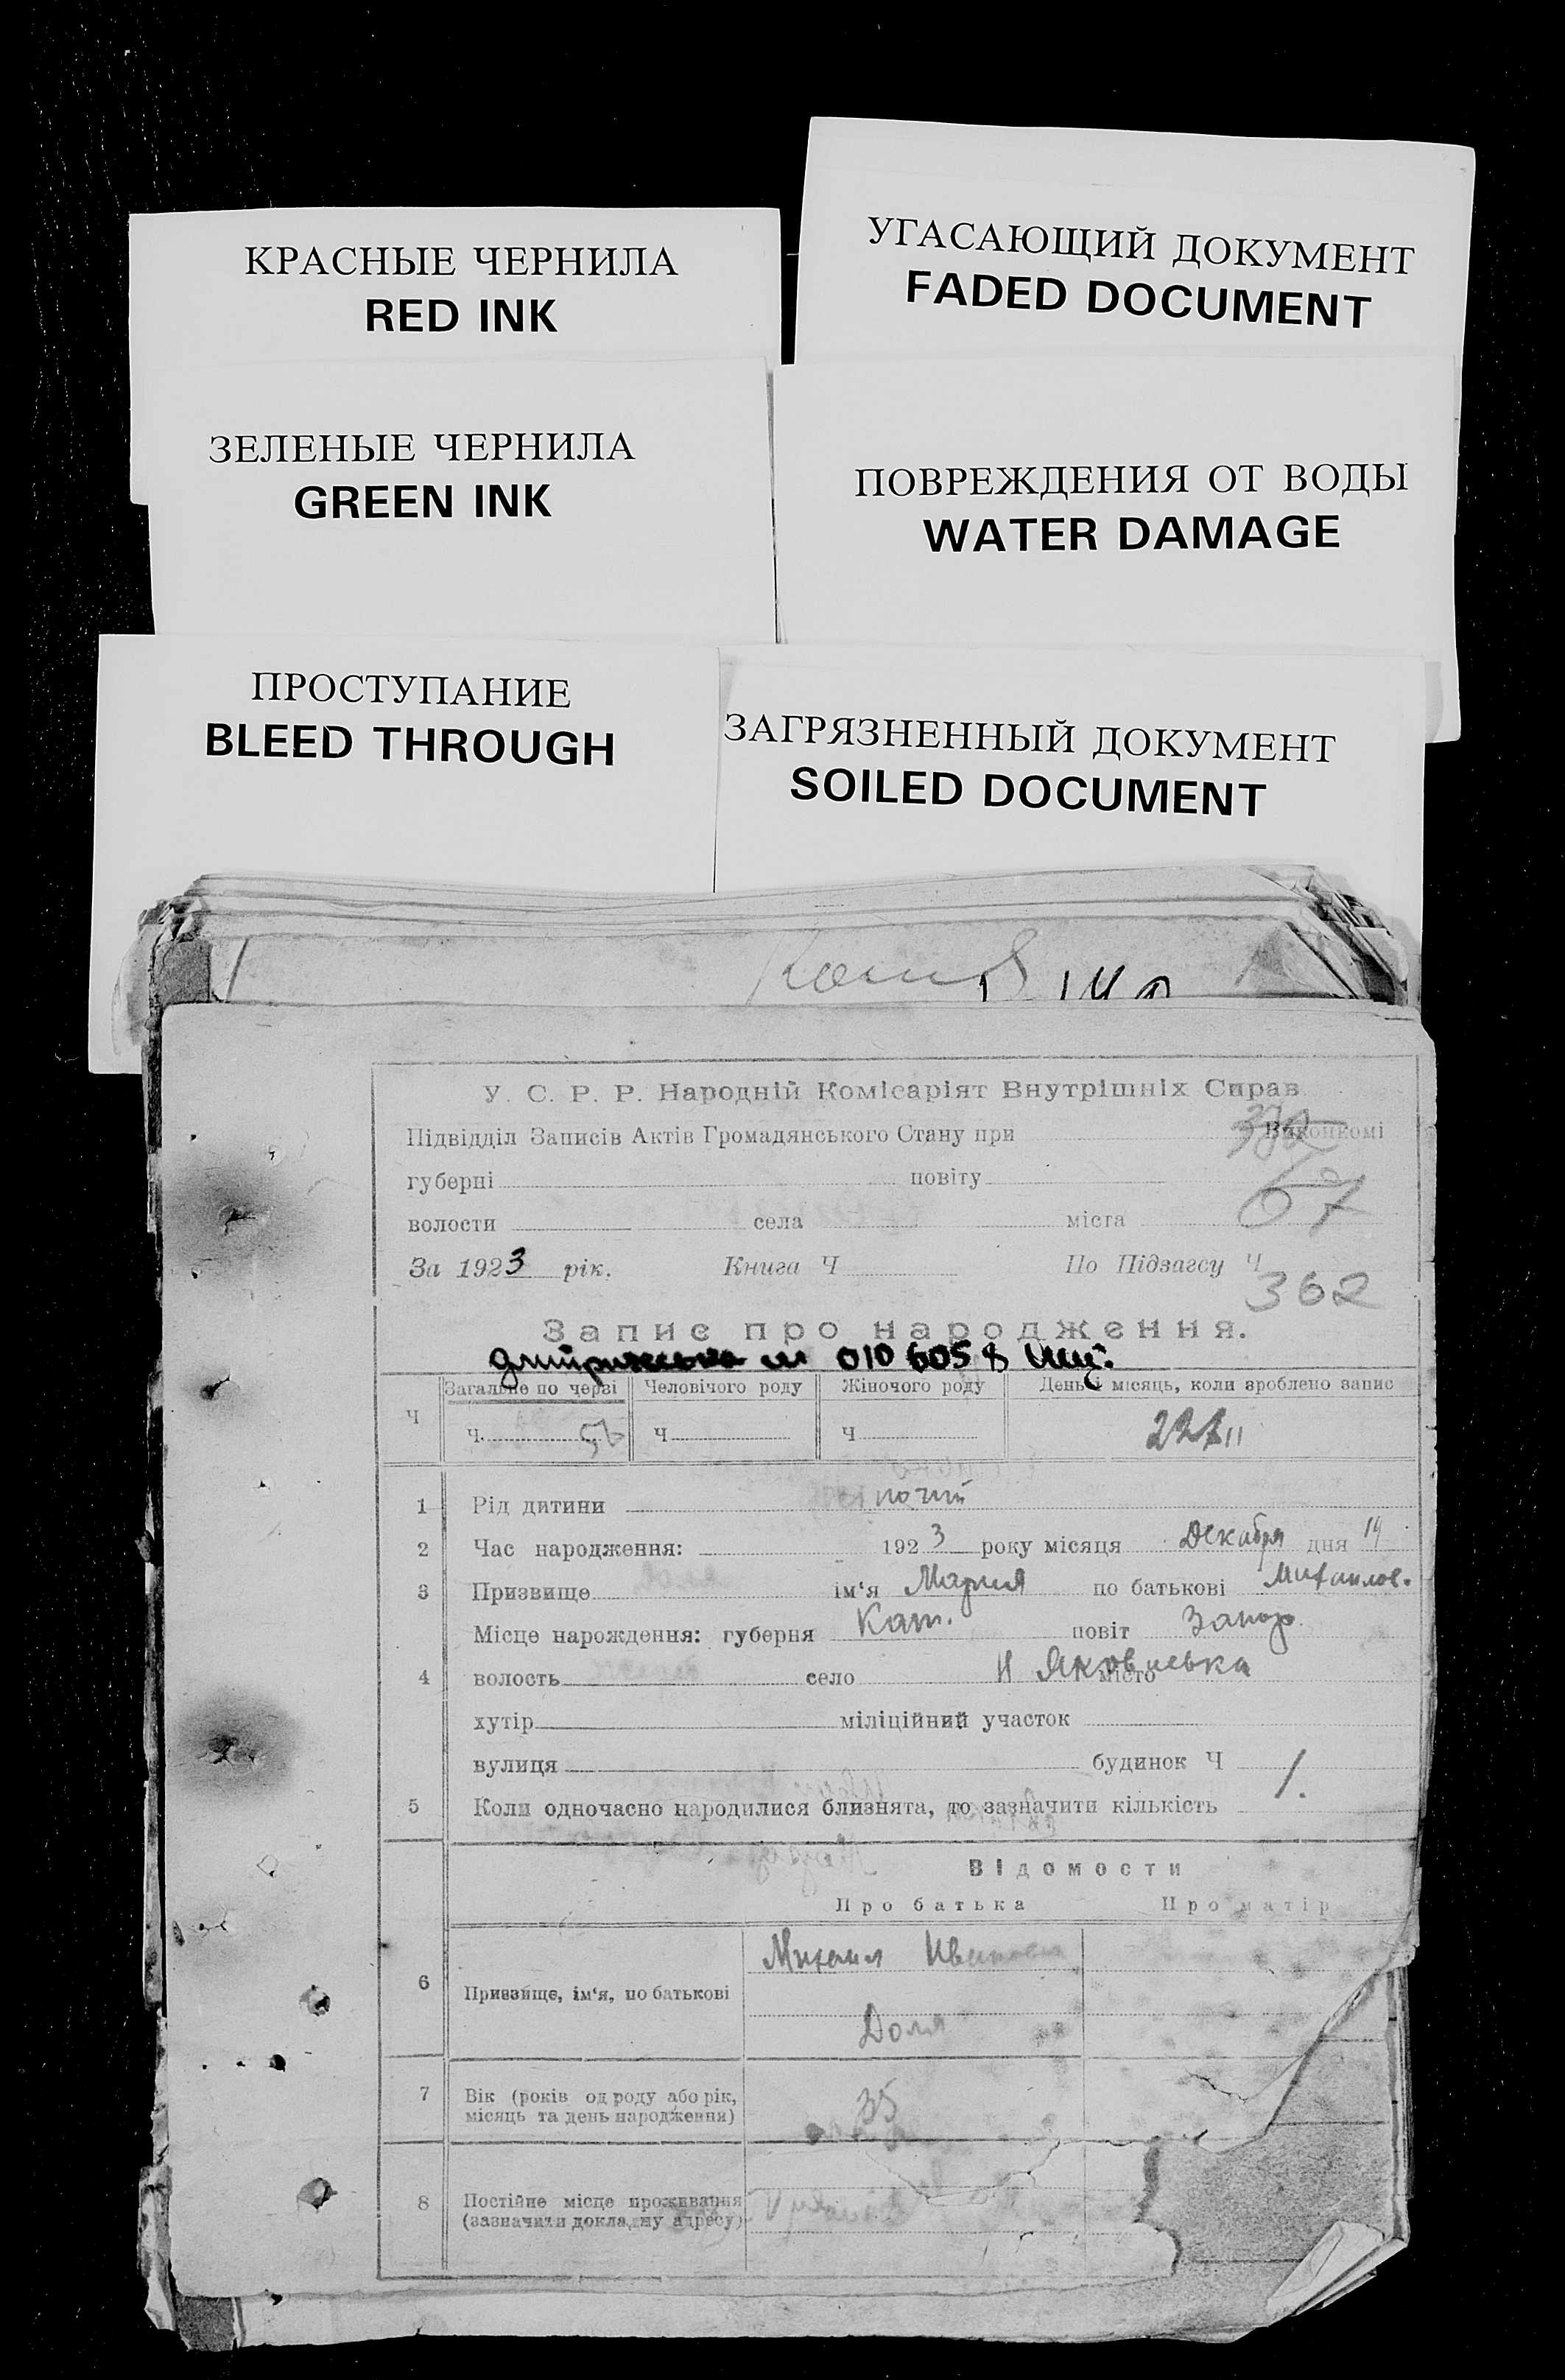 КРАСНЫЕ ЧЕРНИЛА
RED INK
УГАСАЮЩИЙ ДОКУМЕНТ
FADED DOCUMENT
ЗЕЛЕНЫЕ ЧЕРНИЛА
GREEN INK
ПОВРЕЖДЕНИЯ ОТ ВОДЫ
WATER DAMAGE
ПРОСТУПАНИЕ
BLEED THROUGH
ЗАГРЯЗНЕННЫЙ ДОКУМЕНТ
SOILED DOCUMENT
У. С. Р. Р. Народній Комісаріят Внутрішніх Справ
Підвідділ Записів Актів Громадянського Стану при Виконкомі
губерні повіту
67
волости села міста
За 1923 рік. Книга Ч По Підзагсу Ч
362
Запис про народження.
010 605 8
Загальне по черзі Человічого роду Жіночого роду День і місяць, коли зроблено запис
Ч Ч. Ч Ч
1 Рід дитини
2 Час народження: 1923 року місяця Декабря дня 14
3 Призвище ім'я Мария по батькові Михаилов.
Місце нарождення: губерня Кат. повіт Запор.
4 волость село Н Яковлевка місто
хутір міліційний участок
вулиця будинок Ч
5 Коли одночасно народилися близнята, то зазначити кількість 1.
Відомости
Про батька Про матір
6 Призвище, ім'я, по батькові Михаил Иванович
Доля
7 Вік (років од роду або рік, місяць та день народження) 35
8 Постійне місце проживання (зазначити докладну адресу)